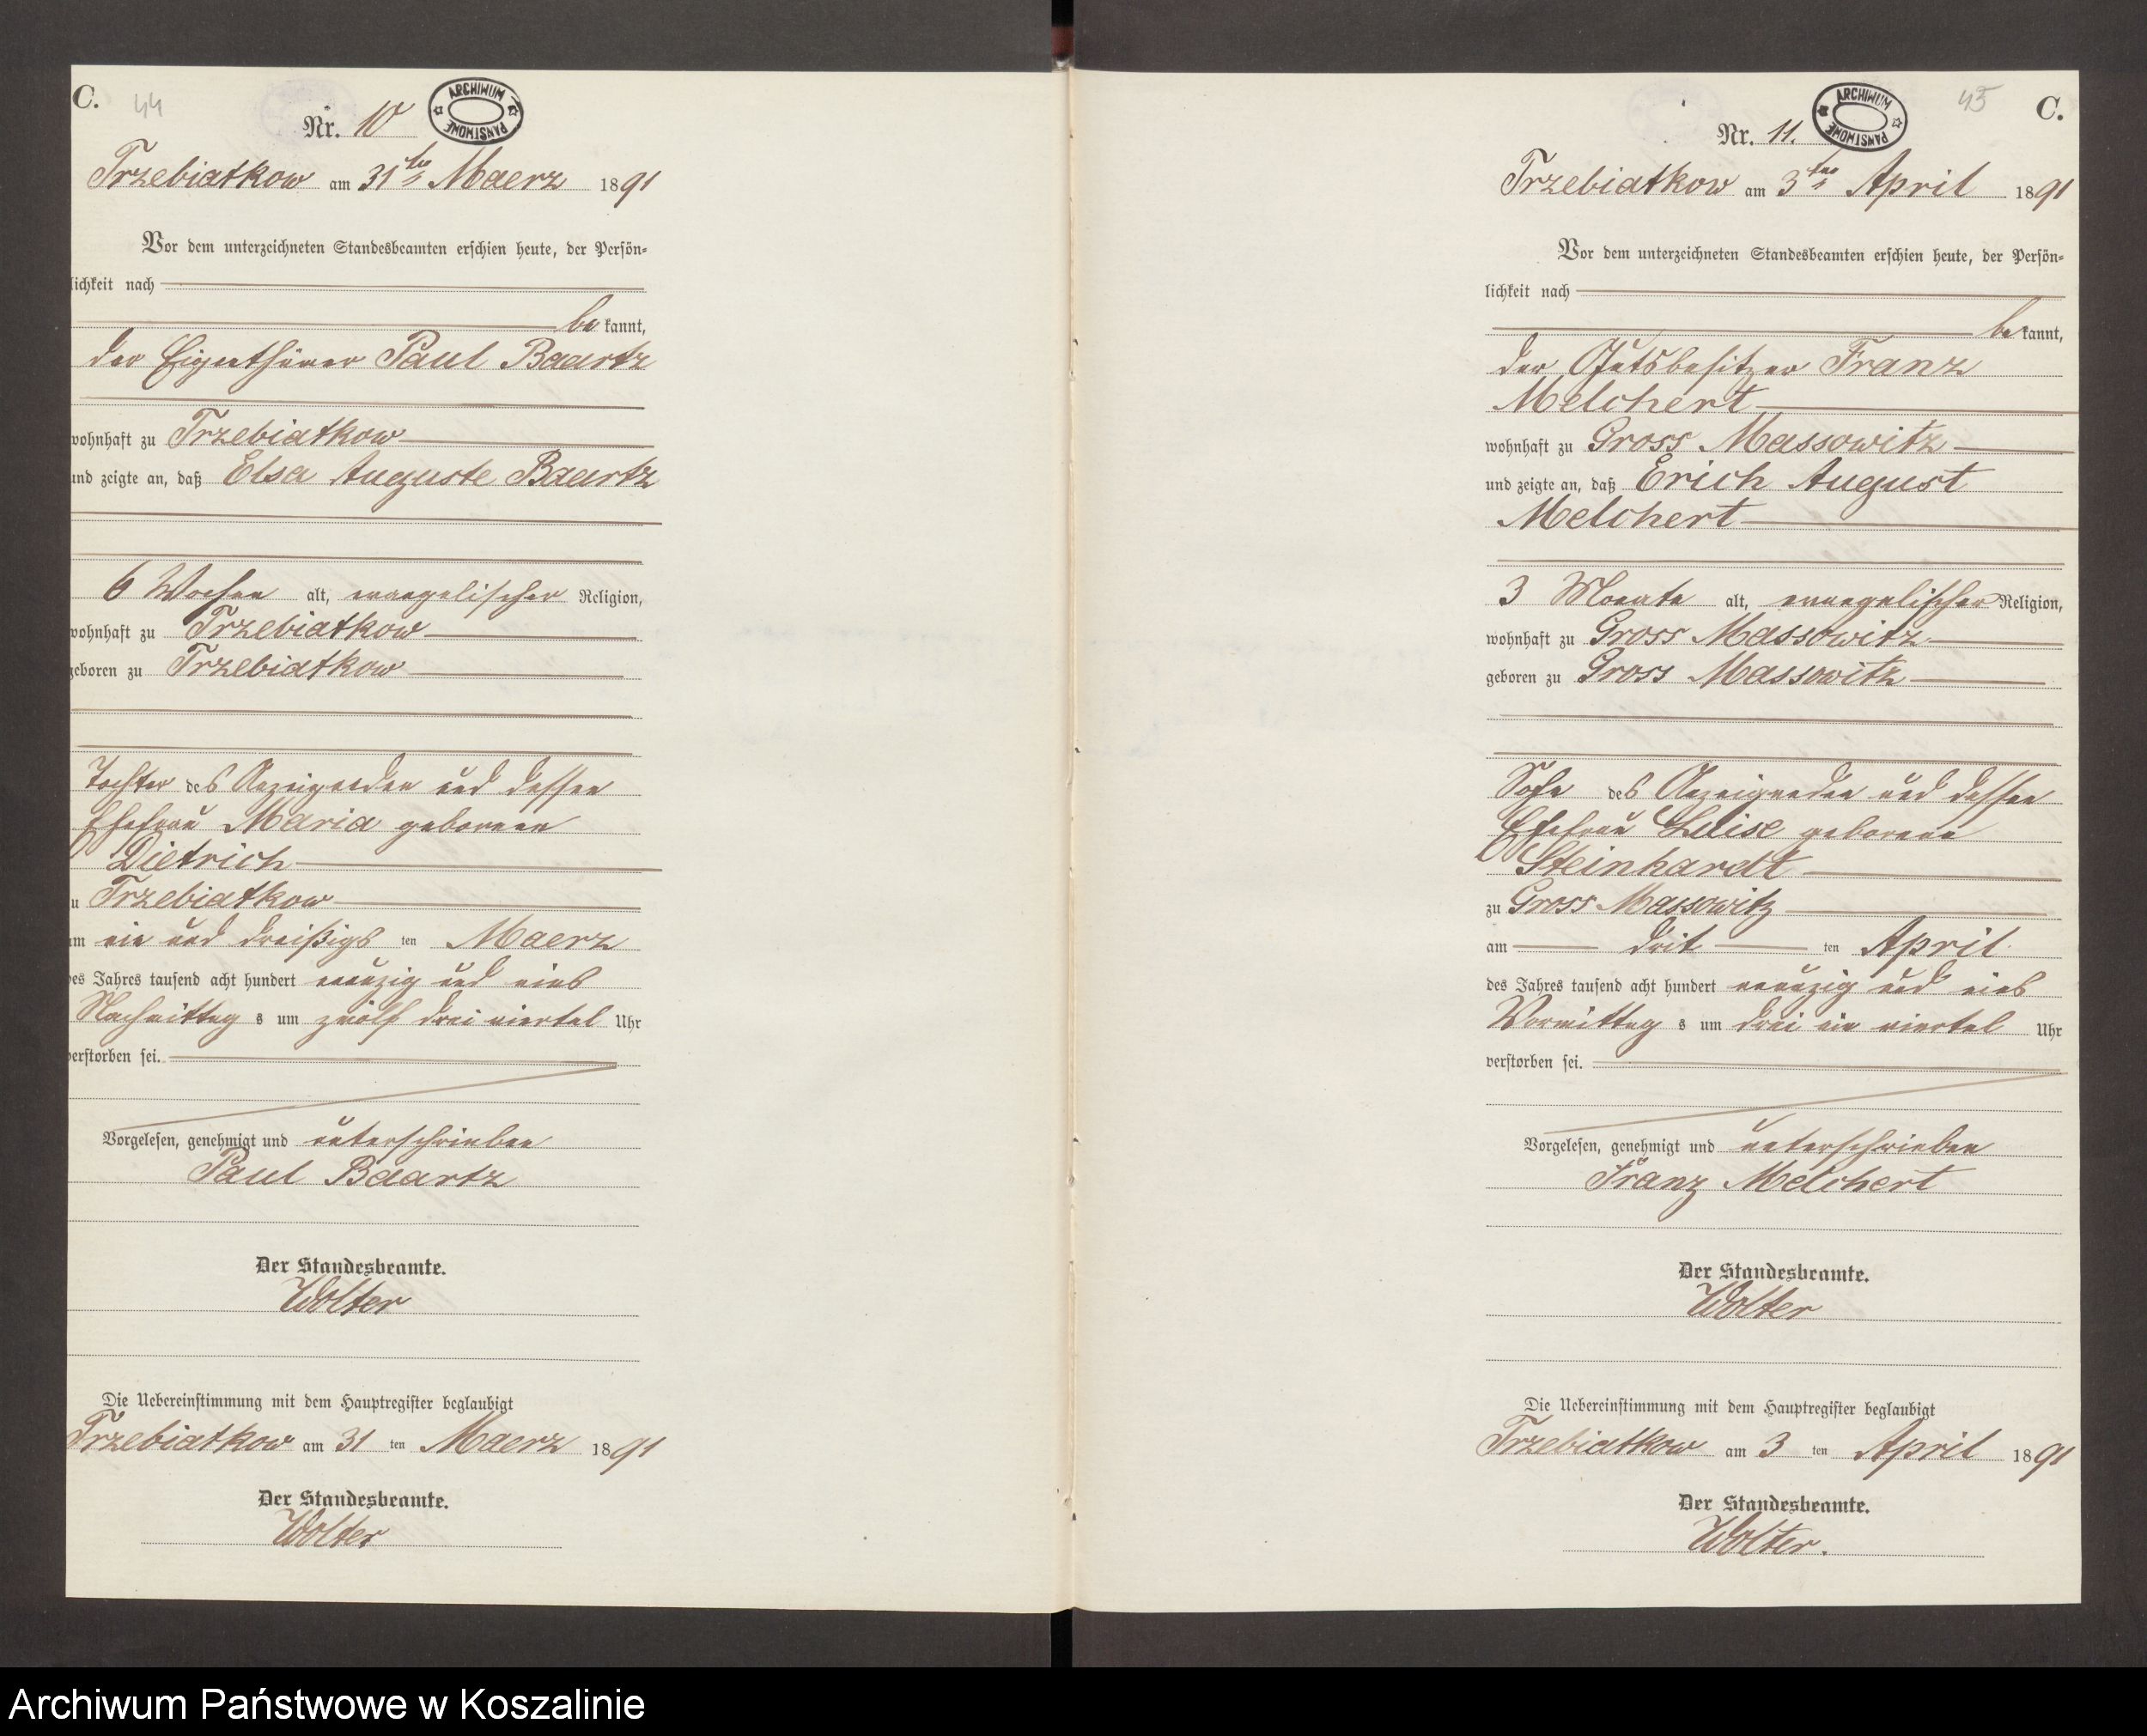 C. 44
Nr. 10
ARCHIWUM PAŃSTWOWE
Trzebiatkow am 31ten Maerz 1891
Vor dem unterzeichneten Standesbeamten erschien heute, der Persön-
lichkeit nach
be kannt,
der Eigenthümer Paul Baartz
wohnhaft zu Trzebiatkow
und zeigte an, daß Elsa Auguste Baartz
6 Wochen alt, evangelischer Religion,
wohnhaft zu Trzebiatkow
geboren zu Trzebiatkow
Tochter des Anzeigenden und dessen
Ehefrau Maria geborenen
Dietrich
zu Trzebiatkow
am ein und dreißigs ten Maerz
des Jahres tausend acht hundert neunzig und eins
Nachmittag s um zwölf drei viertel Uhr
verstorben sei.
Vorgelesen, genehmigt und unterschrieben
Paul Baartz
Der Standesbeamte.
Wolter
Die Uebereinstimmung mit dem Hauptregister beglaubigt
Trzebiatkow am 31 ten Maerz 1891
Der Standesbeamte.
Wolter
45 C.
Nr. 11.
ARCHIWUM PAŃSTWOWE
Trzebiatkow am 3ten April 1891
Vor dem unterzeichneten Standesbeamten erschien heute, der Persön-
lichkeit nach
be kannt,
der Gutsbesitzer Franz
Melchert
wohnhaft zu Gross Massowitz
und zeigte an, daß Erich August
Melchert
3 Monate alt, evangelischer Religion,
wohnhaft zu Gross Massowitz
geboren zu Gross Massowitz
Sohn des Anzeigenden und dessen
Ehefrau Luise geborene
Steinhardt
zu Gross Massowitz
am drit ten April
des Jahres tausend acht hundert neunzig und eins
Vormittag s um drei ein viertel Uhr
verstorben sei.
Vorgelesen, genehmigt und unterschrieben
Franz Melchert
Der Standesbeamte.
Wolter
Die Uebereinstimmung mit dem Hauptregister beglaubigt
Trzebiatkow am 3 ten April 1891
Der Standesbeamte.
Wolter.
Archiwum Państwowe w Koszalinie